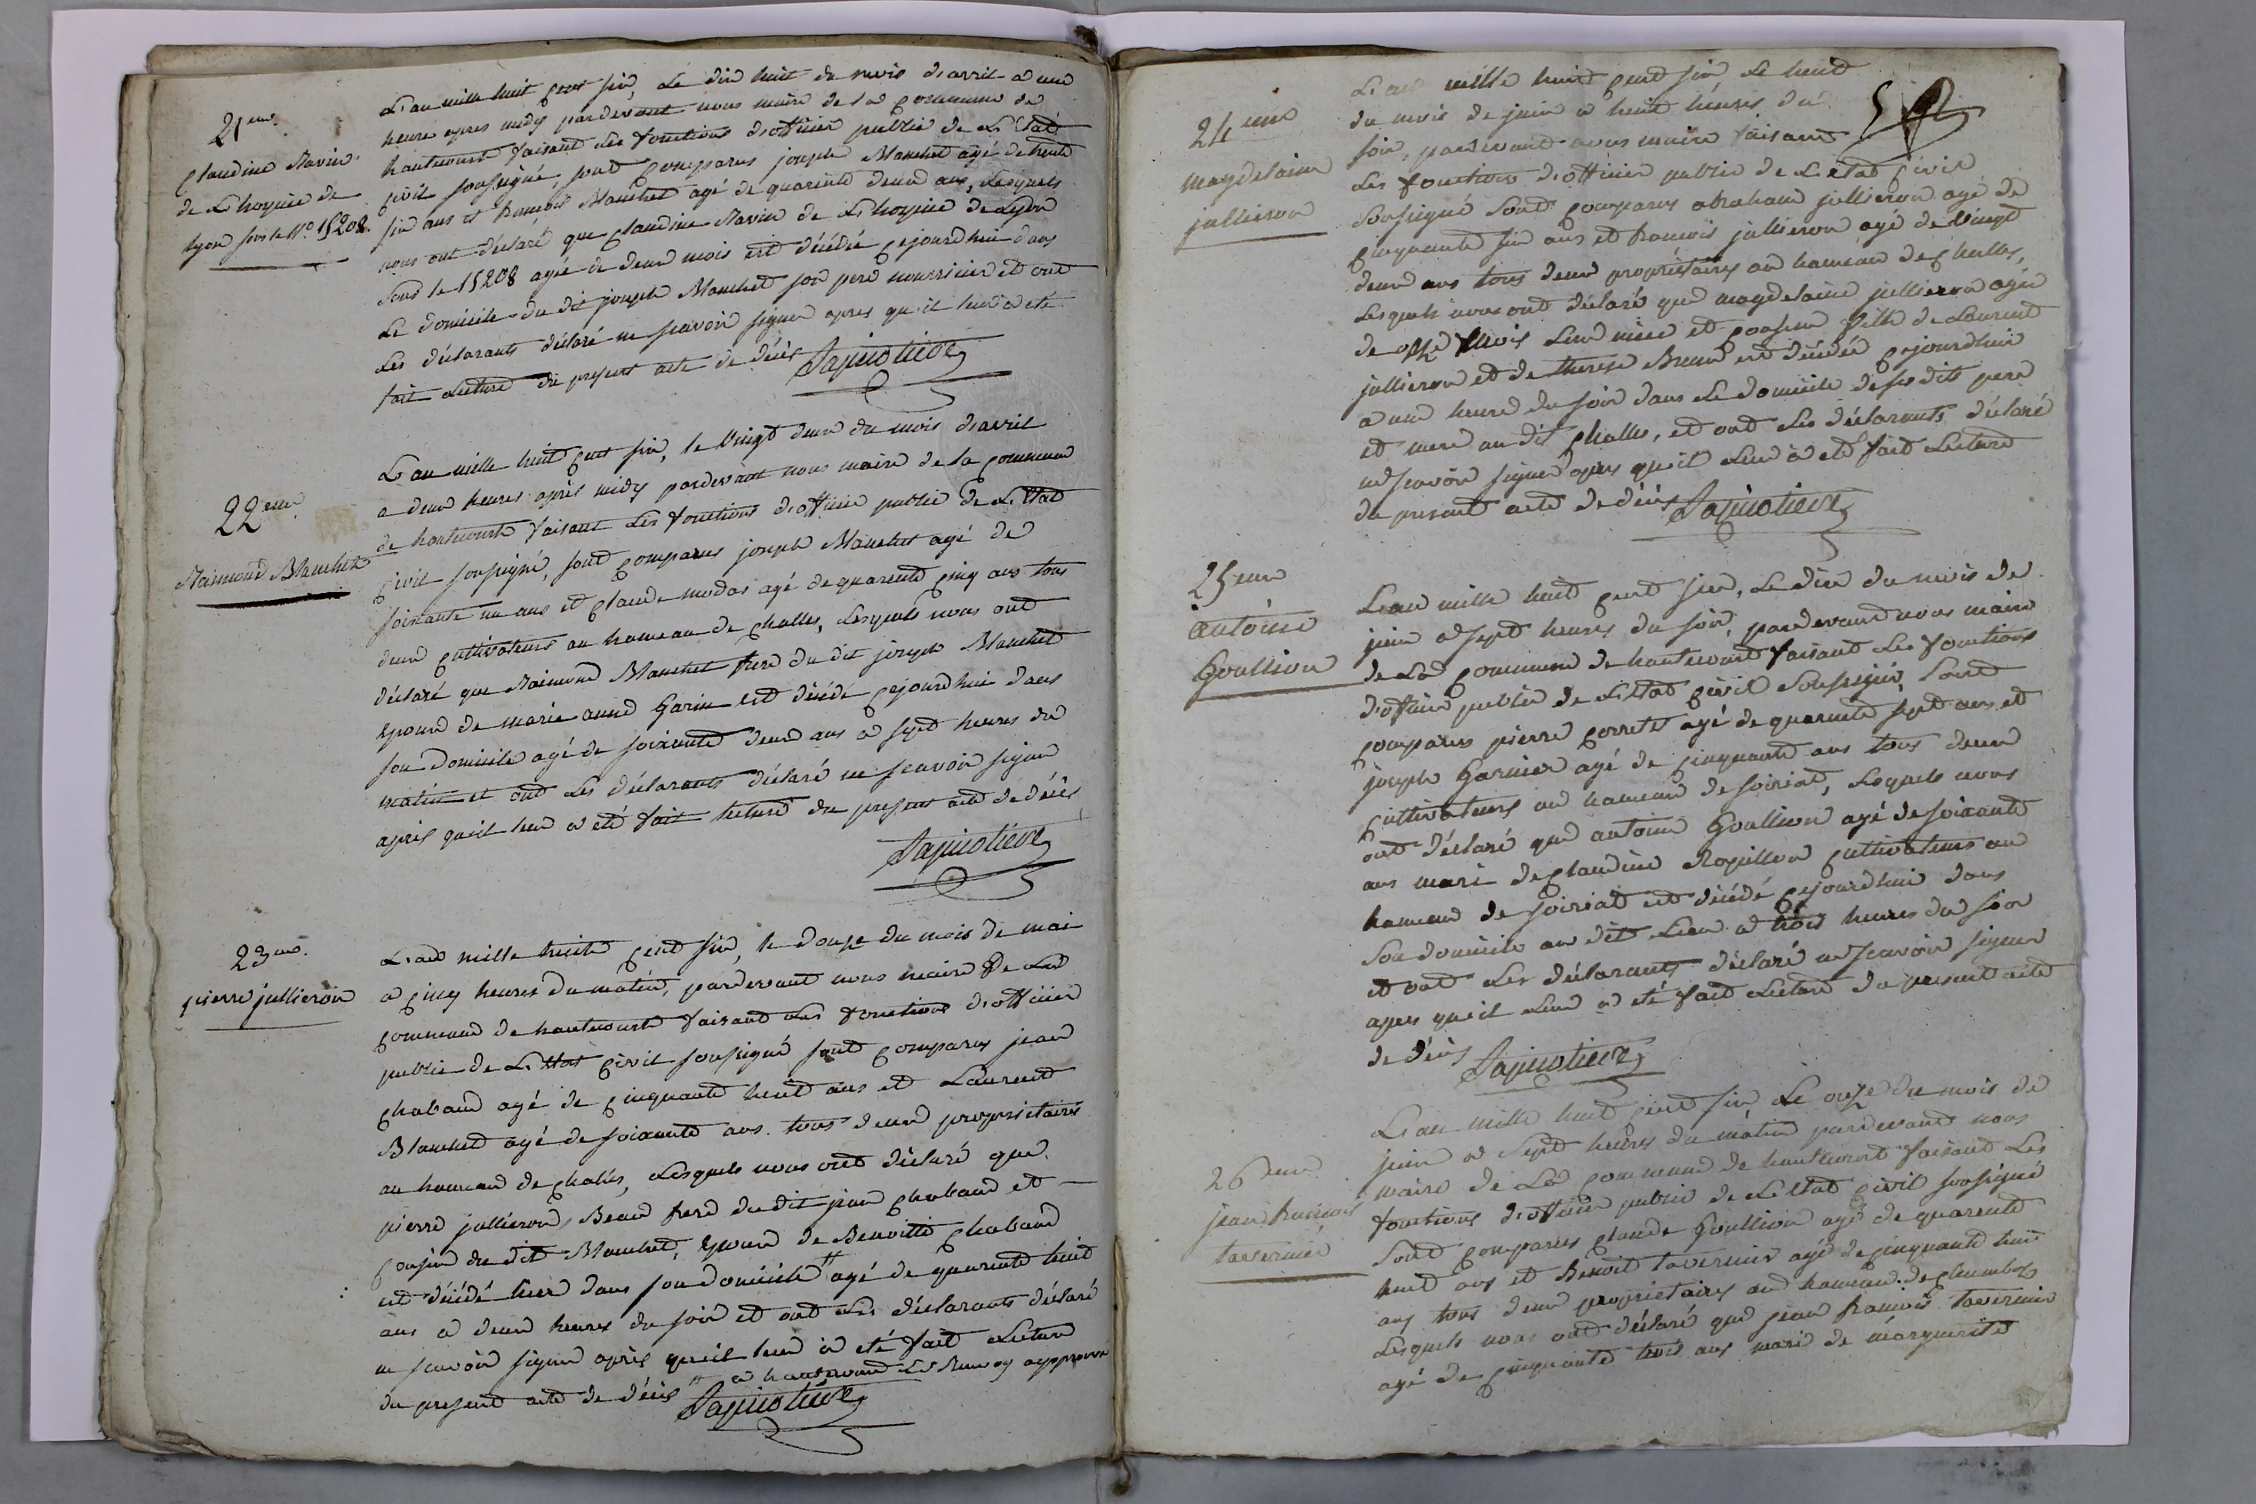 21eme
Claudine Marine
de L'hospice de
Lyon sous le N.o 15208.
L'an mille huit cent six, Le dix huit du mois d'avril a une
heure apres midy pardevant nous maire de la Commune de
hautecourt faisant les fonctions d'officier public de L'Etat
Civil soussigné, sont Comparus joseph Blanchet agé de
six ans et françois Blanchet agé de quarente deux ans, Lesquels
nous ont déclaré que Claudine Marine de L'hospice de Lyon
sous le 15208 agée de deux mois est décédée Cejourdhui dans
Le domicile du dit joseph Blanchet son pere nourricier et ont
Les déclarants déclaré ne scavoir signer apres qu'il leur a eté
fait Lecture du present acte de décès
22eme
Raimond Blanchet
L'an mille huit cent six, le vingt deux du mois d'avril
a deux heures après midy pardevant nous maire de la Commune
de hautecourt faisant Les fonctions d'officier public de L'Etat
Civil soussigné, sont Comparus joseph Blanchet agé de
soixante un ans et Claude modas agé de quarente Cinq ans tous
deux Cultivateurs au hameau de Challes, Lesquels nous ont
déclaré que Raimond Blanchet frere du dit joseph Blanchet
Epoux de marie anne Garin est décédé Cejourdhui dans
son domicile agé de soixante deux ans a sept heures du
matin et ont Les déclarants déclaré ne scavoir signer
après qu'il leur a eté fait lecture du present acte de décès
23eme
pierre jullieron
L'an mille huit Cent six, le douze du mois de mai
a Cinq heures du matin, pardevant nous maire De La
Commune de hautecourt faisant Les fonctions d'officier
public de L'Etat Civil soussigné sont Comparus jean
Chabaud agé de Cinquante huit ans et Laurent
Blanchet agé de soixante ans tous deux proprietaires
au hameau de Challes, Lesquels nous ont déclaré que
pierre jullieron, Beau frere du dit jean Chabaud et
Cousin du dit Blanchet, Epoux de Benoitte Chabaud
est décédé hier dans son domicile # agé de quarente huit
ans a deux heures du soir et ont Les déclarants déclaré
ne scavoir signer après qu'il leur a eté fait Lecture
du present acte de décès # a hautecourt Le Renvoy approuvé
24eme
magdelaine
jullieron
L'an mille huit Cent six Le huit
du mois de juin a huit heures du
soir, pardevant nous maire faisant
Les fonctions d'officier public de L'état Civil
Soussigné Sont Comparus abraham jullieron agé de
Cinquante six ans et francois jullieron agé de Vingt
deux ans tous deux proprietaires au hameau de Challes,
Lesquels nous ont déclaré que magdelaine jullieron agée
de onze mois Leur niece et Cousine fille de Laurent
jullieron et de therese Brun est décédée Cejourdhui
a une heure du soir dans Le domicile de ses dits pere
et mere au dit Challes, et ont Les déclarants déclaré
ne scavoir signer apres qu'il Leur a eté fait Lecture
du present acte de décès
25eme
antoine
Goullion
L'an mille huit Cent six, Le dix du mois de
juin a sept heures du soir, pardevant nous maire
de La Commune de hautecourt faisant Les fonctions
d'officier public de L'Etat Civil Soussigné, Sont
Comparus pierre Corretet agé de quarente sept ans et
joseph Garnier agé de Cinquante ans tous deux
Cultivateurs au hameau de soiriat, Lesquels nous
ont déclaré que antoine Goullion agé de soixante
ans mari de Claudine Ropillon Cultivateurs au
hameau de soiriat est décédé Cejourdhui dans
Son domicile au dit Lieu a trois heures du soir
et ont Les déclarants déclaré ne scavoir signer
apres qu'il Leur a eté fait Lecture du present acte
de décès
26eme
jean francois
tavernier
L'an mille huit Cent six, Le onze du mois de
juin a Sept heures du matin pardevant nous
maire de La Commune de hautecourt faisant Les
fonctions d'officier public de L'Etat Civil soussigné
Sont Comparus Claude Goullion agé de quarente
huit ans et Benoit tavernier agé de Cinquante huit
ans tous deux proprietaires au hameau de
Lesquels nous ont déclaré que jean francois tavernier
agé de Cinquante trois ans mari de marguerite